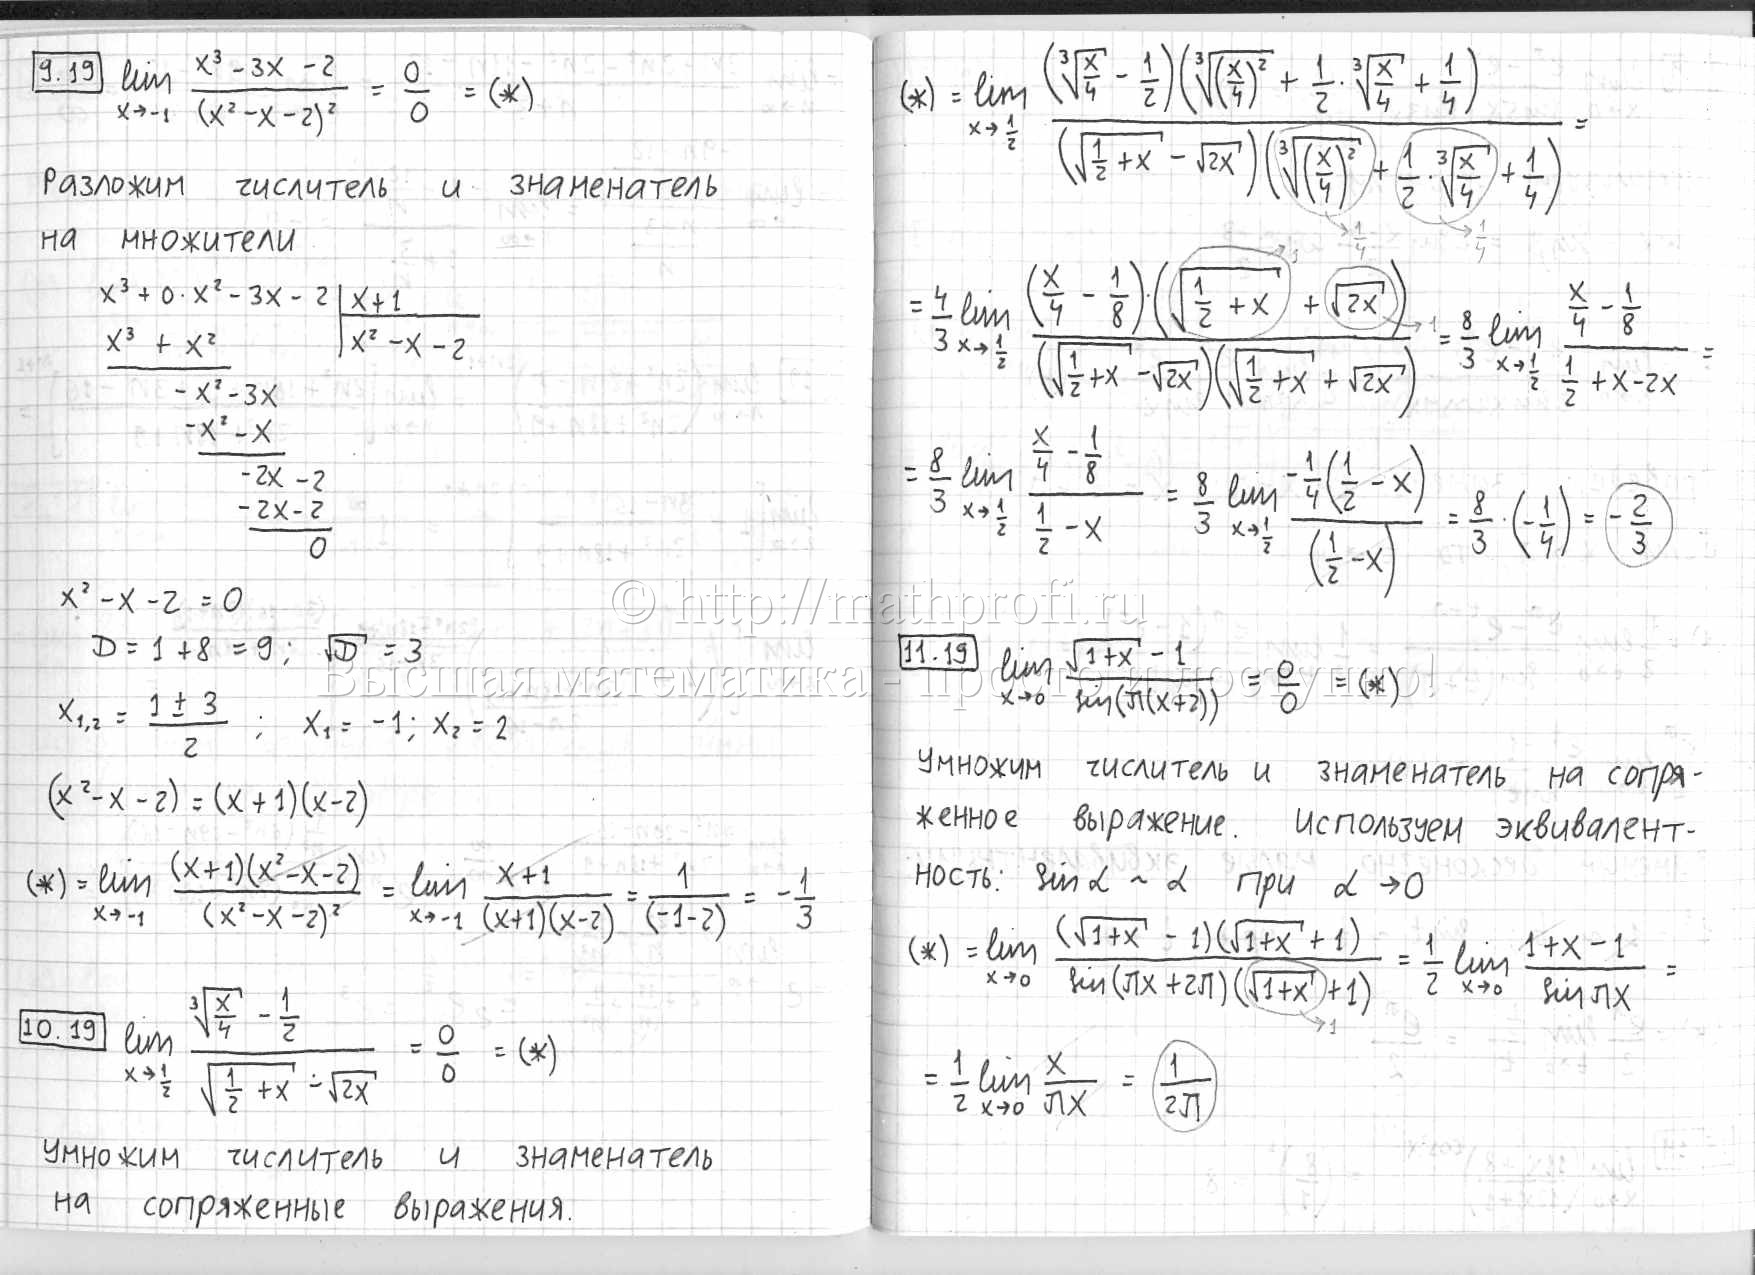 9.19 lim x→-1 (x³ - 3x - 2)/(x² - x - 2)² = 0/0 = (*)
Разложим числитель и знаменатель
на множители
x³ + 0·x² - 3x - 2 | x+1
x³ + x² | x² - x - 2
-x² - 3x
-x² - x
-2x - 2
-2x - 2
0
x² - x - 2 = 0
D = 1 + 8 = 9; √D = 3
x₁,₂ = (1 ± 3)/2; x₁ = -1; x₂ = 2
(x² - x - 2) = (x+1)(x-2)
(*) = lim x→-1 (x+1)(x² - x - 2)/(x² - x - 2)² = lim x→-1 (x+1)/((x+1)(x-2)) = 1/(-1-2) = -1/3
10.19 lim x→1/2 (∛(x/4) - 1/2)/(√(1/2 + x) - √(2x)) = 0/0 = (*)
Умножим числитель и знаменатель
на сопряженные выражения.
(*) = lim x→1/2 (∛(x/4) - 1/2)(∛((x/4)²) + 1/2·∛(x/4) + 1/4)/((√(1/2 + x) - √(2x))(∛((x/4)²) + 1/2·∛(x/4) + 1/4)) =
→1/4 →1/4
→1
= 4/3 lim x→1/2 (x/4 - 1/8)·(√(1/2 + x) + √(2x))/((√(1/2 + x) - √(2x))(√(1/2 + x) + √(2x))) = 8/3 lim x→1/2 (x/4 - 1/8)/(1/2 + x - 2x) =
→1
= 8/3 lim x→1/2 (x/4 - 1/8)/(1/2 - x) = 8/3 lim x→1/2 (-1/4(1/2 - x))/(1/2 - x) = 8/3·(-1/4) = -2/3
© http://mathprofi.ru
Высшая математика - просто и доступно!
11.19 lim x→0 (√(1+x) - 1)/sin(π(x+2)) = 0/0 = (*)
Умножим числитель и знаменатель на сопря-
женное выражение. Используем эквивалент-
ность: sin α ~ α при α → 0
(*) = lim x→0 (√(1+x) - 1)(√(1+x) + 1)/(sin(πx + 2π)(√(1+x) + 1)) = 1/2 lim x→0 (1 + x - 1)/sin πx =
→1
= 1/2 lim x→0 x/πx = 1/2π